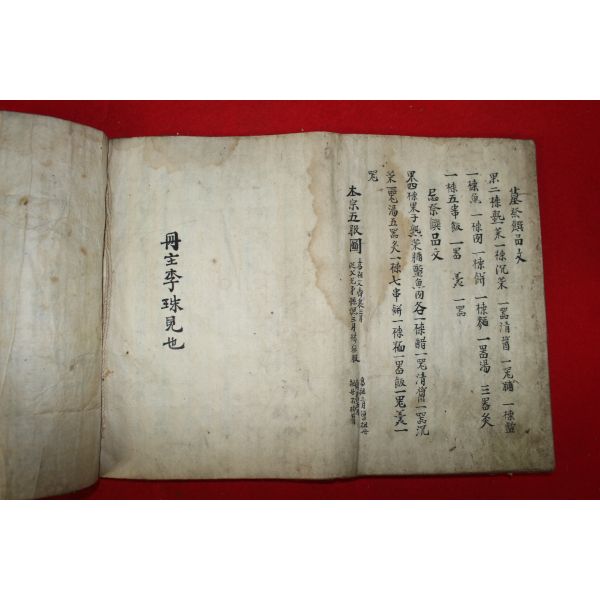 墓祭饌品文
果二楪熟菜一楪沉菜一器清醬一器脯一楪醢
一楪魚一楪肉一楪餠一楪麵一器湯三器炙
一楪五串飯一器羹一器
忌祭饌品文
果四楪果子熟菜脯醢魚肉各一楪醋一器清醬一器沉
菜一器湯五器炙一楪七串餠一楪麵一器飯一器羹一
器
本宗五服圖
冊主李珠見也